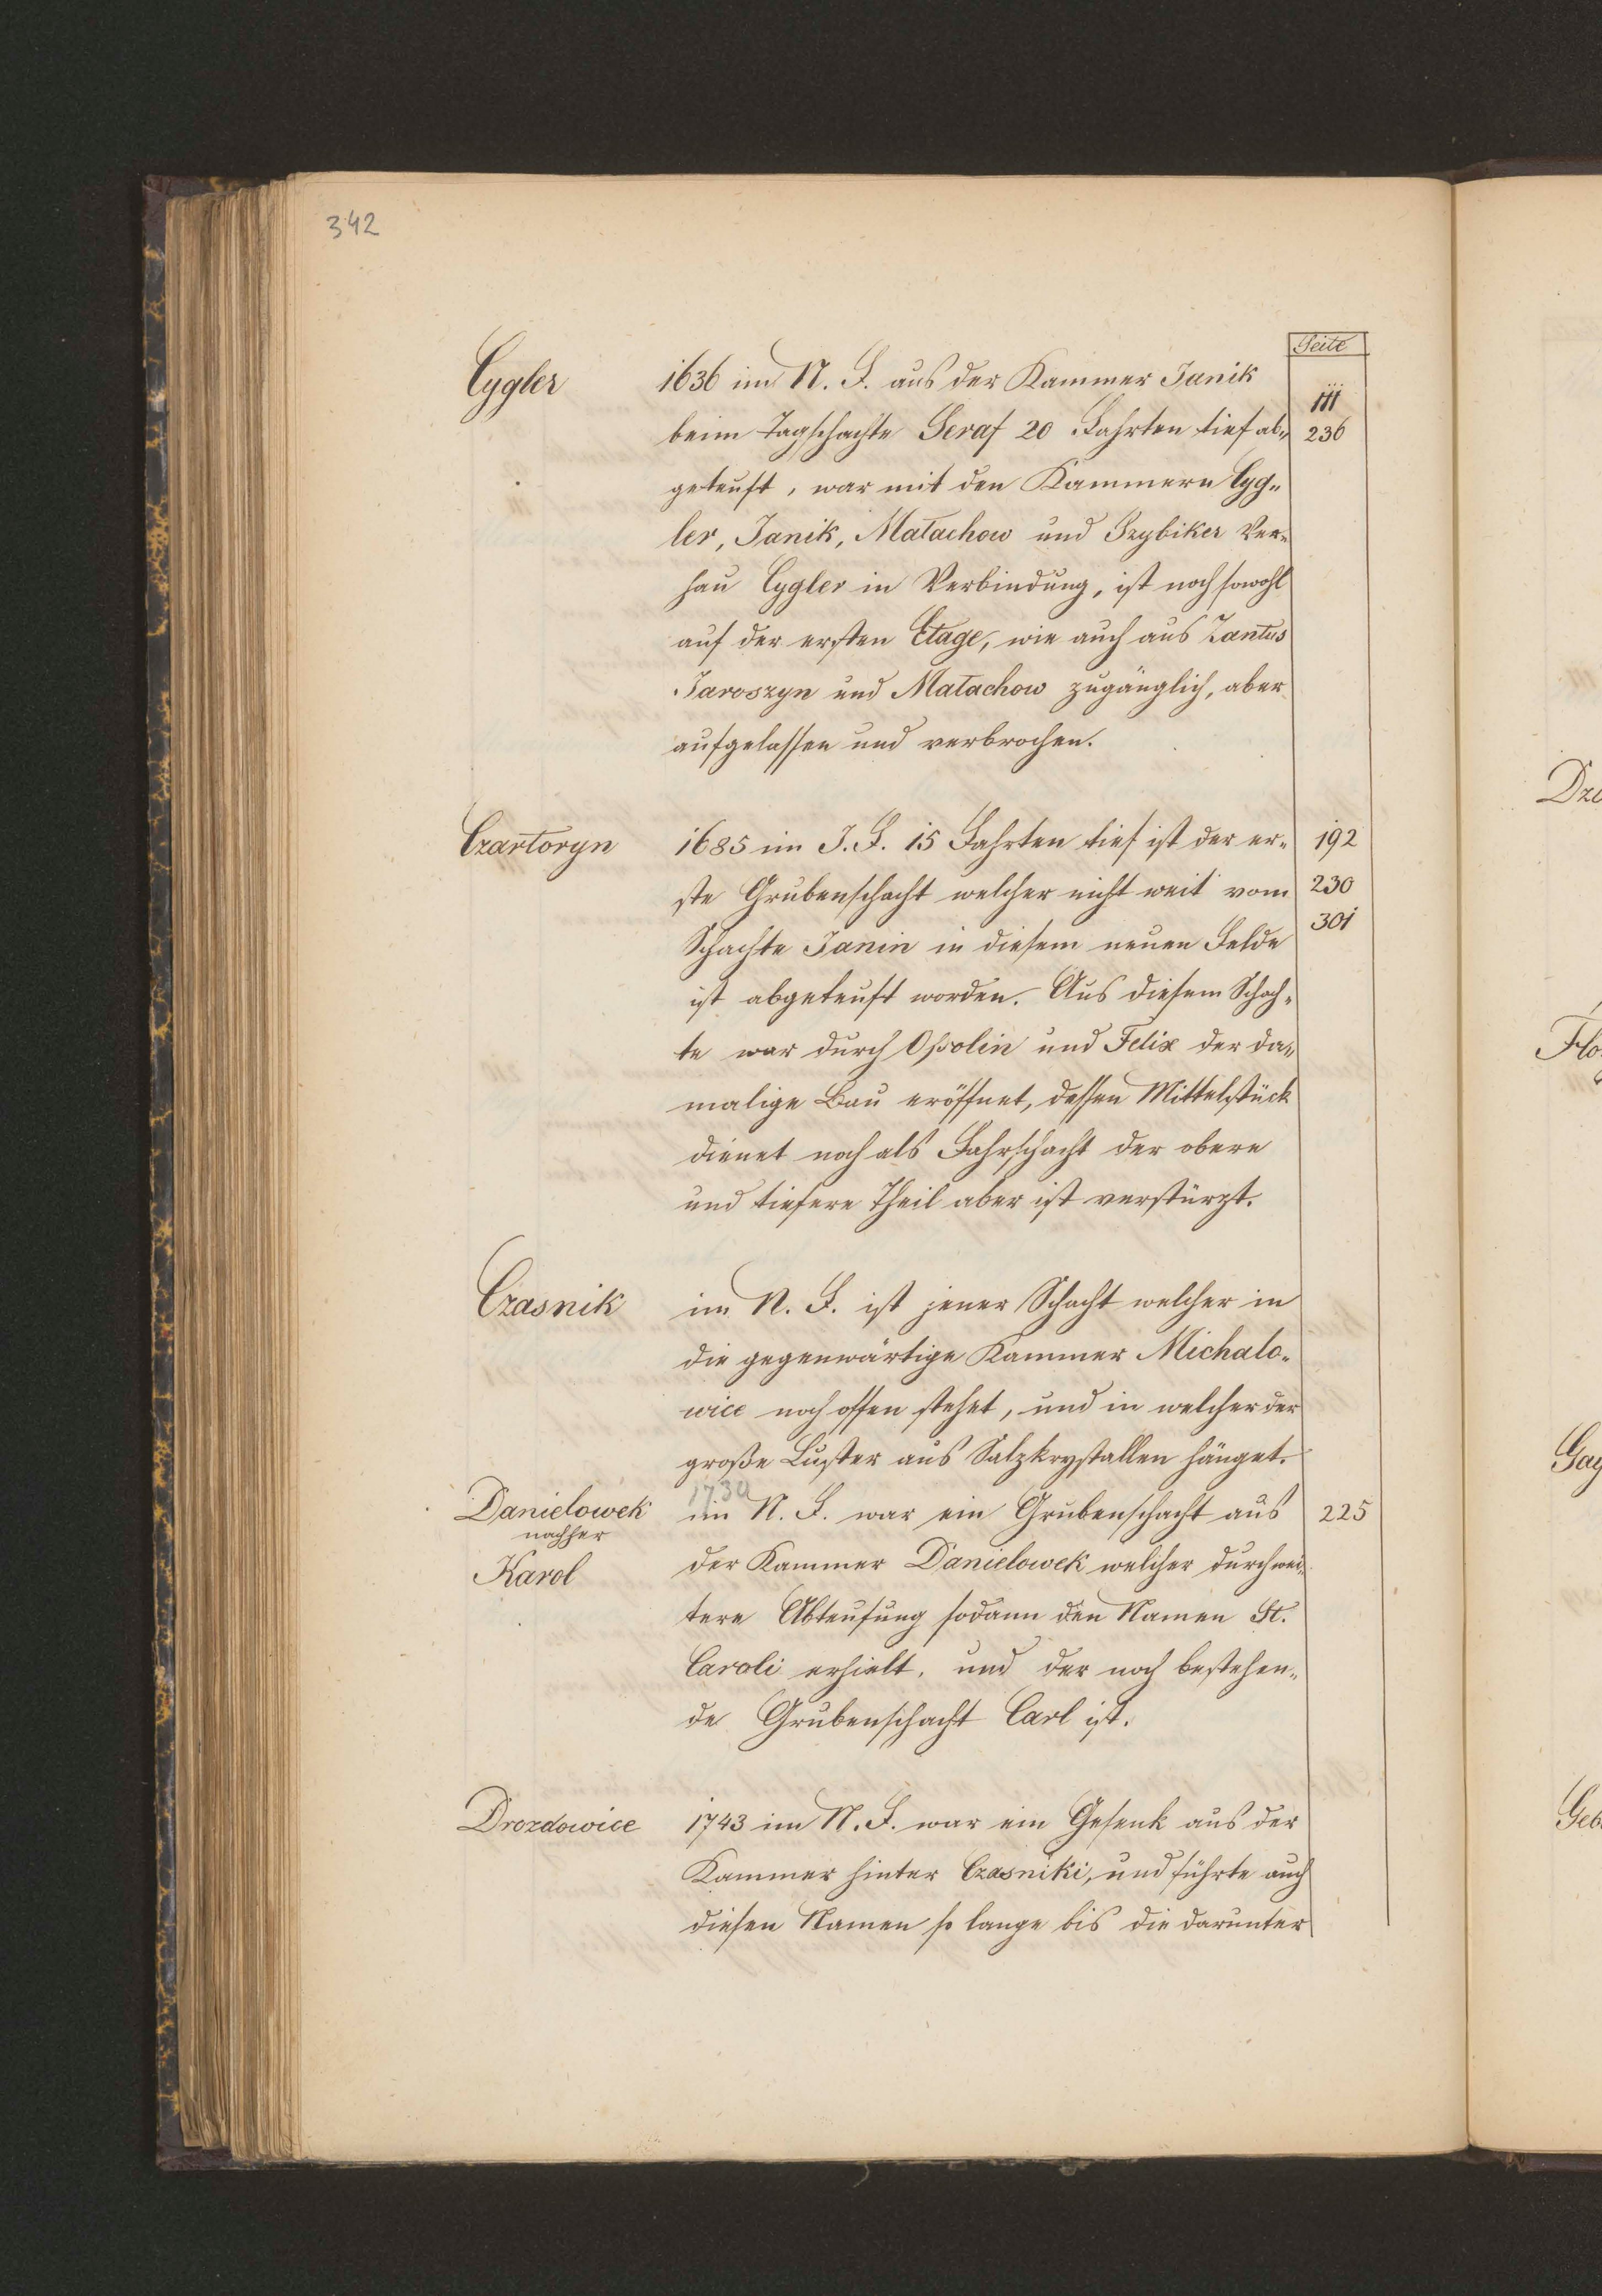 342
Seite
Cygler 1636 im N. F. aus der Kammer Janik
111
beim Tagschachte Seraf 20 Fahrten tief ab= 236
geteuft, war mit den Kammern Cyg=
ler, Janik, Małachow und Szybiker Ver=
hau Cygler in Verbindung, ist noch sowohl
auf der ersten Etage, wie auch aus Zantus
Jaroszyn und Małachow zugänglich, aber
aufgelassen und verbrochen.
Czartoryn 1685 im J. F. 15 Fahrten tief ist der er= 192
ste Grubenschacht welcher nicht weit vom 230
Schachte Janin in diesem neuen Felde 301
ist abgeteuft worden. Aus diesem Schach=
te war durch Ossolin und Felix der da=
malige Bau eröffnet, dessen Mittelstück
dienet noch als Fahrschacht der obere
und tiefere Theil aber ist verstürzt.
Czasnik im N. F. ist jener Schacht welcher in
die gegenwärtige Kammer Michalo=
wice noch offen stehet, und in welcher der
große Luster aus Salzkrystallen hänget.
1730
Danielowek im N. F. war ein Grubenschacht aus 225
nachher
Karol der Kammer Danielowek welcher durch wei=
tere Abteufung sodann den Namen St.
Caroli erhielt, und der noch bestehen=
de Grubenschacht Carl ist.
Drozdowice 1743 im N. F. war ein Gesenk aus der
Kammer hinter Czasniki, und führte auch
diesen Namen so lange bis die darunter
Dzi
Flo
Gay
Geb